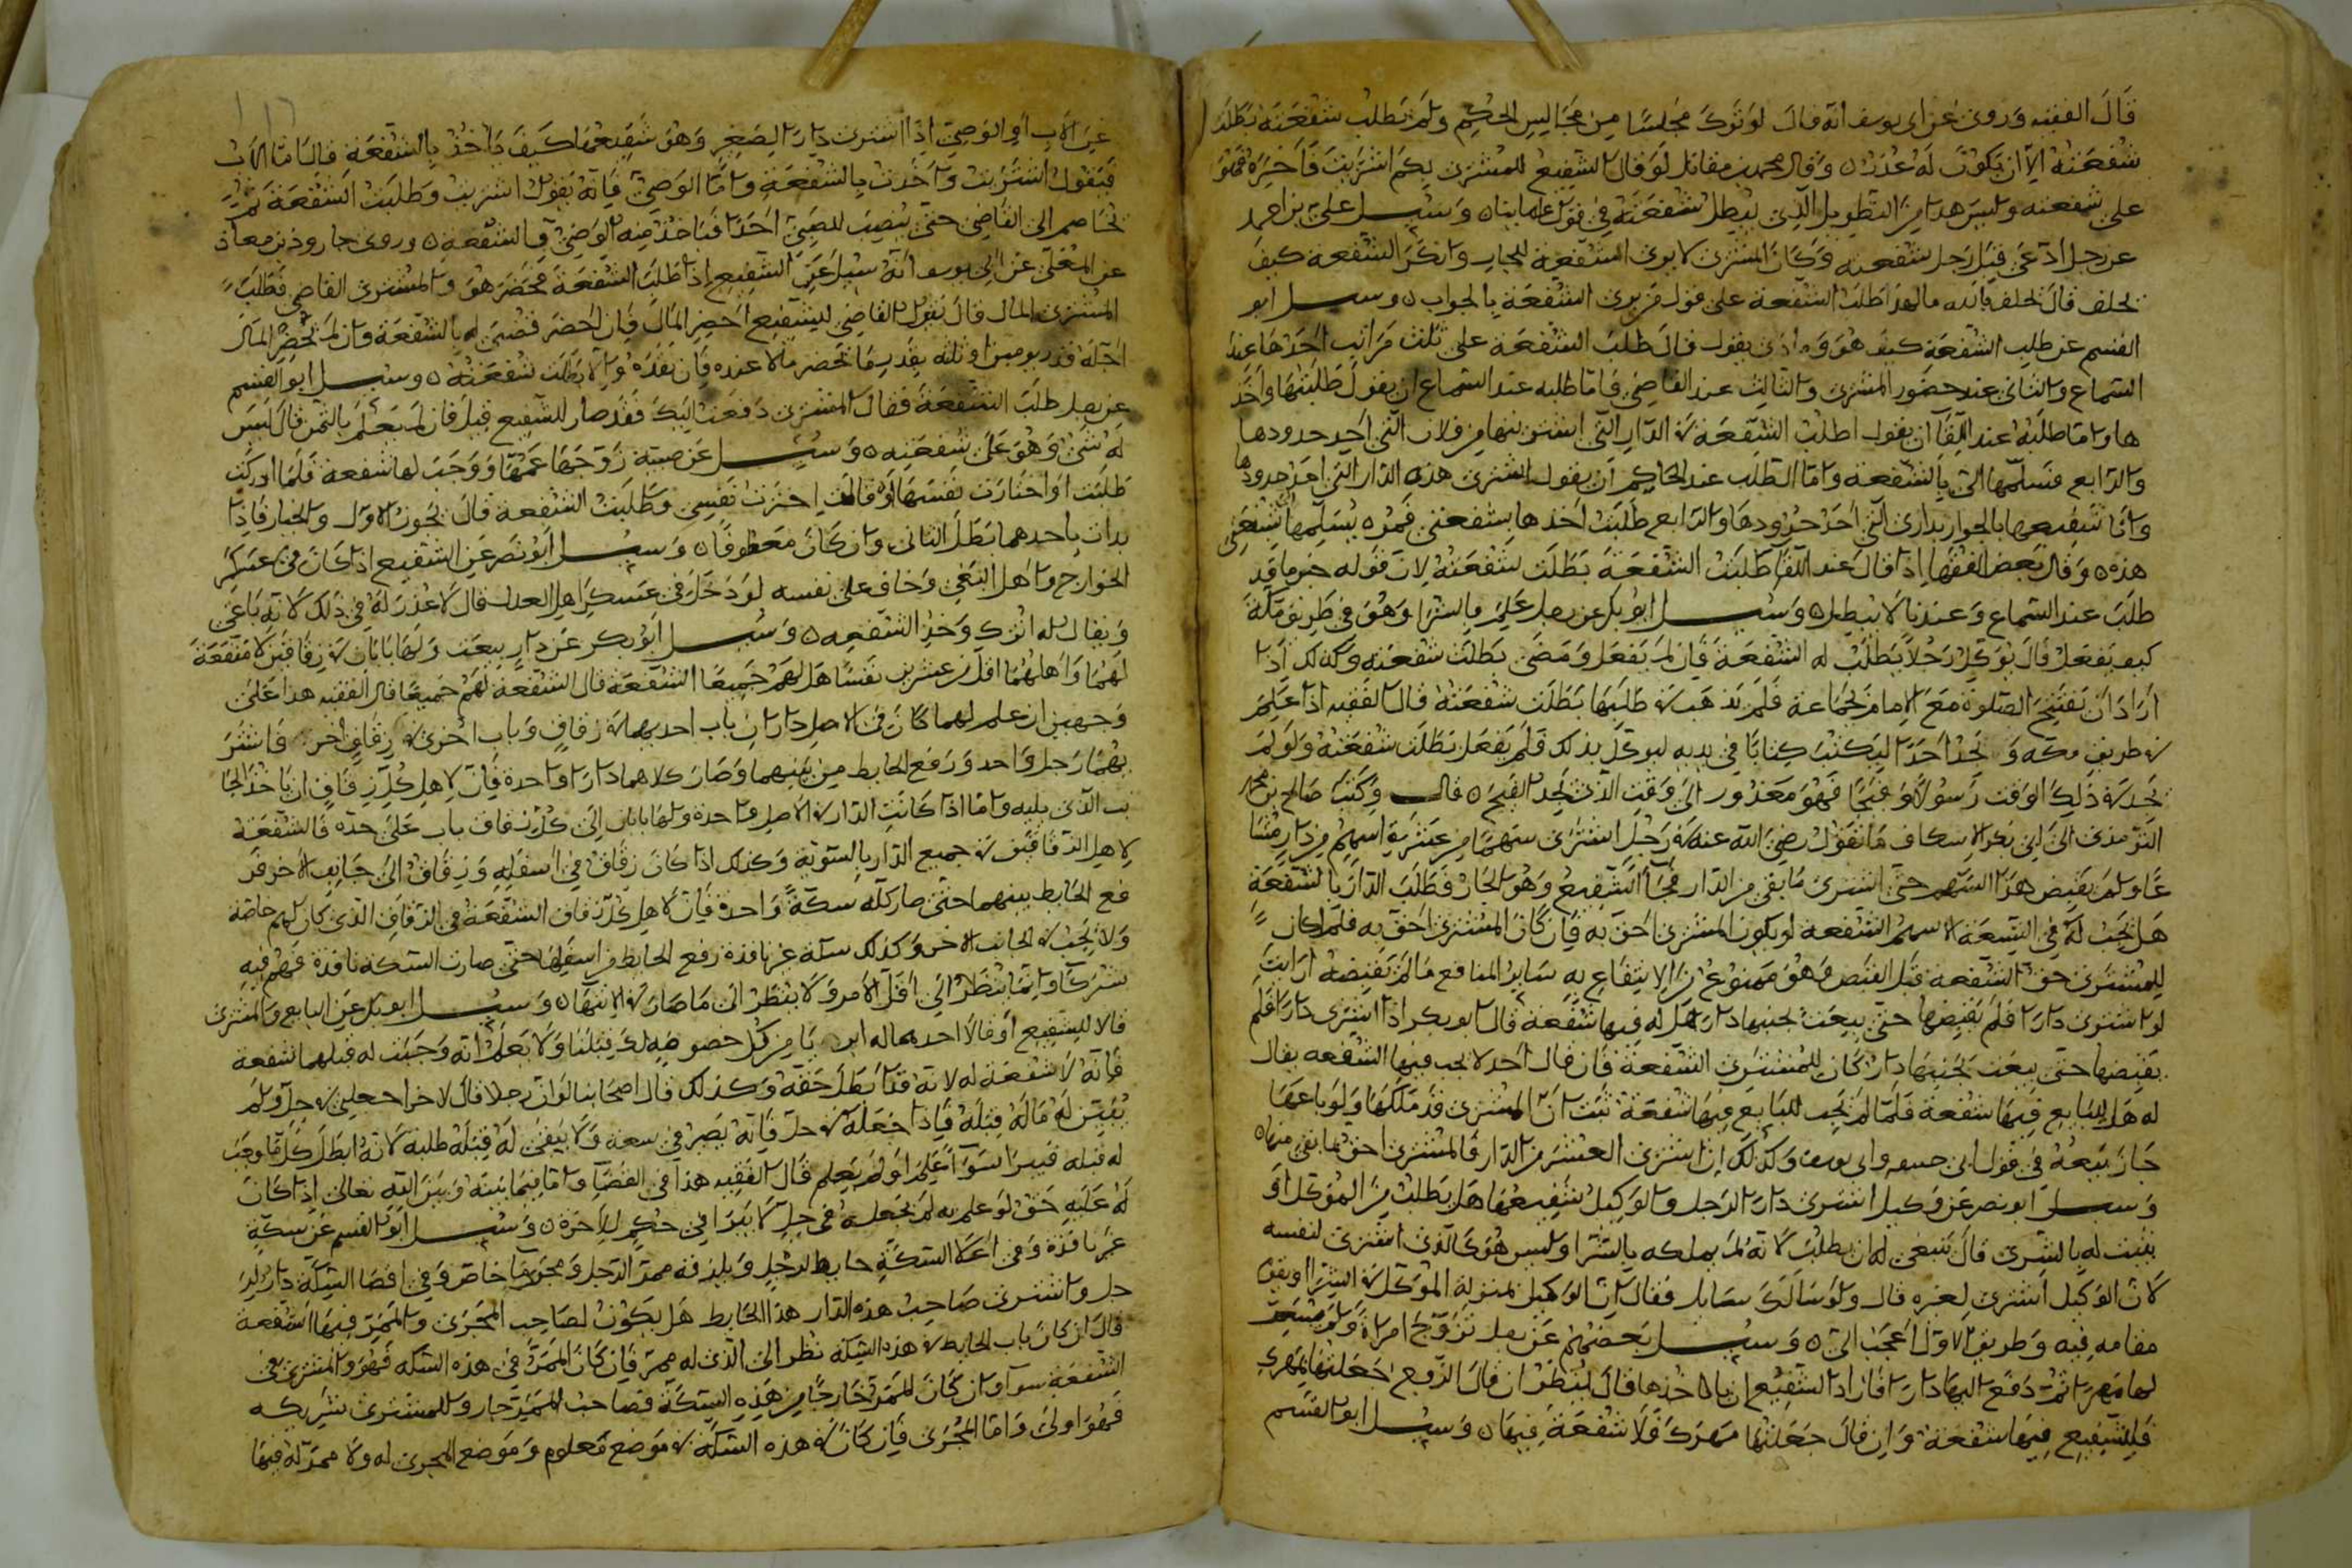 قال الفقيه وروى عن ابي يوسف انه قال لو ترك مجلسا من مجاليس الحكم ولم يطلب شفعته بطلت
شفعته الا ان يكون له عذر ه وقال محمد بن مقاتل لو قال الشفيع للمشتري بكم اشتريت فاخبره فهو
على شفعته وليس هذا من التطويل الذي يبطل شفعته في قول علمائنا ه وسئل علي بن احمد
عن رجل ادعى قبل رجل شفعة وكان المشتري لا يرى الشفعة للجار وانكر الشفعة كيف
يحلف قال يحلف بالله ما لهذا طلب الشفعة على قول من يرى الشفعة بالجواب ه وسئل ابو
القسم عن طلب الشفعة كيف هو وماذى يقول قال طلب الشفعة على ثلث مراتب احدها عند
السماع والثاني عند حضور المشتري والثالث عند القاضي فاما طلبه عند السماع ان يقول طلبتها واخذ
ها واما طلبه عند اللقاء ان يقول اطلب الشفعة في الدار التي اشتريتها من فلان التي احد حدودها
والرابع فسلمها الي بالشفعة واما الطلب عند الحاكم ان يقول اشترى هذه الدار التي احد حدودها
وانا شفيعها بالجوار بداري التي احد حدودها والرابع طلبت اخذها بشفعتي فمره يسلمها شفعتي
هذه ه وقال بعض الفقهاء اذا قال عند اللقاء طلبت الشفعة بطلت شفعته لان قوله خبر ما قد
طلب عند السماع وعندنا لا يبطل ه وسئل ابو بكر عن رجل علم بالشرا وهو في طريق مكة
كيف يفعل قال يوكل رجلا يطلب له الشفعة فان لم يفعل ومضى بطلت شفعته وكذلك اذا
اراد ان يفتتح الصلوة مع الامام بجماعة فلم يذهب في طلبها بطلت شفعته قال الفقيه اذا علم
في طريق مكه و يجد احدا ليكتب كتابا في يديه ليوكل بذلك فلم يفعل بطلت شفعته ولو لم
يجد في ذلك الوقت رسولا وفيجا فهو معذور الى وقت الذي يجد الفيج ه قال وكتب صالح بن محمد
الترمذي الى ابي بكر الاسكاف ما تقول رضي الله عنه في رجل اشترى سهما من عشرة اسهم من دار مشا
عا ولم يقبض هذا السهم حتى اشترى ما بقي من الدار فجاء الشفيع وهو الجار فطلب الدار بالشفعة
هل يجب له في التسعة الاسهم الشفعة او يكون المشتري احق به فان كان المشتري احق به فلم اكان
للمشتري حق الشفعة قبل القبض وهو ممنوع عن الانتفاع به سائر المنافع ما لم يقبضه ارايت
لو اشترى دارا فلم يقبضها حتى بيعت بجنبها دار هل له فيها شفعة قال ابو بكر اذا اشترى دارا فلم
يقبضها حتى بيعت بجنبها دار كان للمشتري الشفعة فان قال احد لا يجب فيها الشفعة يقال
له هل للبايع فيها شفعة فلما لم يجب للبايع فيها شفعة ثبت ان المشتري قد ملكها ولو باعها
جاز بيعه في قول ابي حنيفه وابي يوسف وكذلك ان اشترى العشر من الدار فالمشتري احق بما بقي منها ه
وسئل ابو نصر عن وكيل اشترى دارا لرجل والوكيل شفيعها هل يطلب من الموكل او
يثبت له بالشرى قال ينبغي له ان يطلب لانه لم يملكه بالشرا وليس هو كالذي اشترى لنفسه
لان الوكيل اشترى لغيره قال ولو سالك سايل فقال ان الوكيل بمنزلة الموكل في الشرا ويقوم
مقامه فيه وطريق الاول اعجب الي ه وسئل بعضهم عن رجل تزوج امراة ولم يسم
لها مهرا ثم دفع اليها دارا فاراد الشفيع ان ياخذها قال ينظر ان قال الزوج جعلتها بمهرك
فللشفيع فيها شفعة وان قال جعلتها مهرك فلا شفعة فيها ه وسئل ابو القسم
عن الاب او الوصي اذا اشترى دارا لصغير وهو شفيعها كيف ياخذ بالشفعة قال اما الاب
فيقول اشتريت واخذت بالشفعة واما الوصي فانه يقول اشتريت وطلبت الشفعة ثم
يخاصم الى القاضي حتى ينصب للصبي احدا فياخذ منه الوصي بالشفعة ه وروى جارود بن معاذ
عن المعلى عن ابي يوسف انه سئل عن الشفيع اذا طلب الشفعة فحضر هو والمشتري القاضي فطلب
المشتري المال قال يقول القاضي للشفيع احضر المال فان احضر قضى له بالشفعة وان لم يحضر المال
اجله قدر يومين او ثلثه بقدر ما يحضر مالا عنده فان نقده والا بطلت شفعته ه وسئل ابو القسم
عن رجل طلب الشفعة فقال المشتري دفعت اليك فقد صار للشفيع قيل فان لم يعلم بالثمن قال ليس
له شيء وهو على شفعته ه وسئل عن صبية زوجها عمها ووجب لها شفعة فلما ادركت
طلبت او اختارت نفسها او قالت اخترت نفسي وطلبت الشفعة قال يجوز الاول والخيار فاذا
بدات باحدهما بطل الثاني وان كان معطوفا ه وسئل ابو نصر عن الشفيع اذا كان في عسكر
الخوارج واهل البغي وخاف على نفسه لو دخل في عسكر اهل العدل قال لا عذر له في ذلك لانه باغي
ويقال له اترك وخذ الشفعه ه وسئل ابو بكر عن دار بيعت ولها بابان في زقاقين لا منفعة
لهما واهلهما اقل من عشرين نفسا هل لهم جميعا الشفعة قال الشفعة لهم جميعا قال الفقيه هذا على
وجهين ان علم لهما كان في الاصل داران باب احديهما في زقاق وباب اخرى في زقاق اخر فاشتر
يهما رجل واحد ورفع الحايط من بينهما وصار كلاهما دارا واحدة فان لاهل كل زقاق ان ياخذ الجا
نب الذي يليه واما اذا كانت الدار في الاصل واحدة ولها بابان الى كل زقاق باب على حده فالشفعة
لاهل الزقاقين في جميع الدار بالسوية وكذلك اذا كان زقاق في اسفله وزقاق الى جانب الاخر فر
فع الحايط بينهما حتى صار كله سكة واحدة فان لاهل كل زقاق الشفعة في الزقاق الذي كان لهم خاصة
ولا يجب في الجانب الاخر وكذلك سكة غير نافذة رفع الحايط من اسفلها حتى صارت السكه نافذة فهم فيه
شركاء وانما ينظر الى اقل الامر ولا ينظر الى ما صار في الانتهاء ه وسئل ابو بكر عن البايع والمشتري
قالا للشفيع او قالا احدهما له ابر يا من كل خصومه لك قبلنا ولا يعلم انه وجبت له قبلهما شفعة
فانه لا شفعة له لانه قد ابطل حقه وكذلك قال اصحابنا لو ان رجلا قال لاخر اجعلني في حل ولم
يبين له ماله قبله فاذا جعله في حل فانه يصير في سعة ولا يبقى له قبله طلبة لانه ابطل كل ما وجب
له قبله فيبرا سواء علم او لم يعلم قال الفقيه هذا في القضاء واما فيما بينه وبين الله تعالى اذا كان
له عليه حق لو علم به لم يجعله في حل لا يبرا في حكم الاخرة ه وسئل ابو القسم عن سكة
غير نافذة وفي اعلا السكة حايط لرجل وبلزقه ممر الرجل ومجرى ماء خاص وفي اقصا السكة دار لر
جل واشترى صاحب هذه الدار هذا الحايط هل يكون لصاحب المجرى والممر فيها شفعة
قال ان كان باب الحايط في هذه السكة نظر الى الذي له ممر فان كان الممر في هذه السكه فهو والمشتري في
الشفعة سواء وان كان الممر خارجا من هذه السكة فصاحب الممر جار وللمشتري شريكه
فهو اولى واما المجرى فان كان في هذه السكة في موضع معلوم وموضع المجرى له ولا ممر له فيها